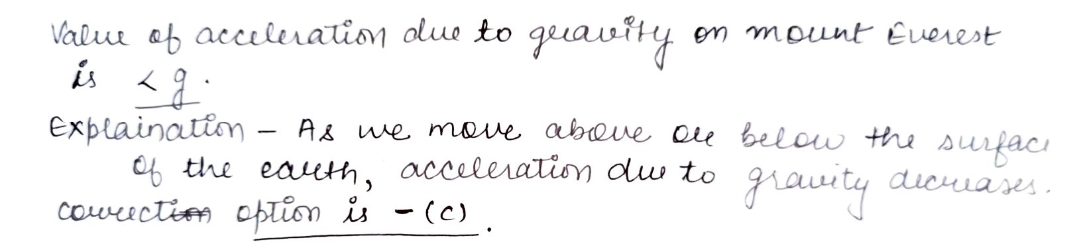 Value of acceleration due to gravity on mount Everest
is < g.
Explaination - As we move above or below the surface
of the earth, acceleration due to gravity decreases.
correction option is - (c).